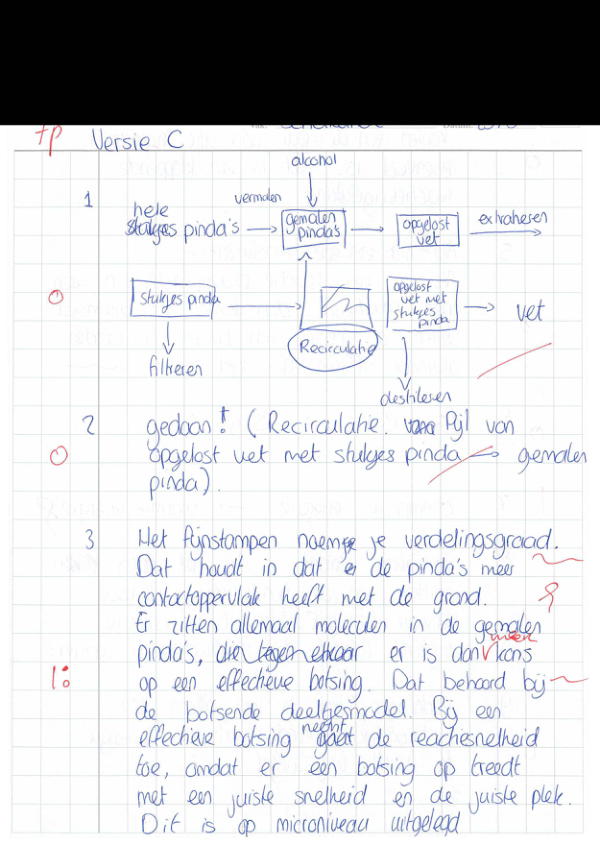 7p Versie C
alcohol
1
vermalen
hele
stukjes pinda's
gemalen
pinda's
opgelost
vet
extraheren
0
stukjes pinda
opgelost
vet met
stukjes
pinda
vet
Recirculatie
filtreren
destileren
2 gedaan! (Recirculatie. Pijl van
0 opgelost vet met stukjes pinda → gemalen
pinda).
3 Het fijnstampen noemje je verdelingsgraad.
Dat houdt in dat de pinda's meer
contactoppervlak heeft met de grond. ?
Er zitten allemaal moleculen in de gemalen
meer
pinda's, die tegen elkaar er is dan kans
1: op een effectieve botsing. Dat behoord bij
de botsende deeltjesmodel. Bij een
neemt
effectieve botsing gaat de reactiesnelheid
toe, omdat er een botsing op treedt
met een juiste snelheid en de juiste plek.
Dit is op microniveau uitgelegd